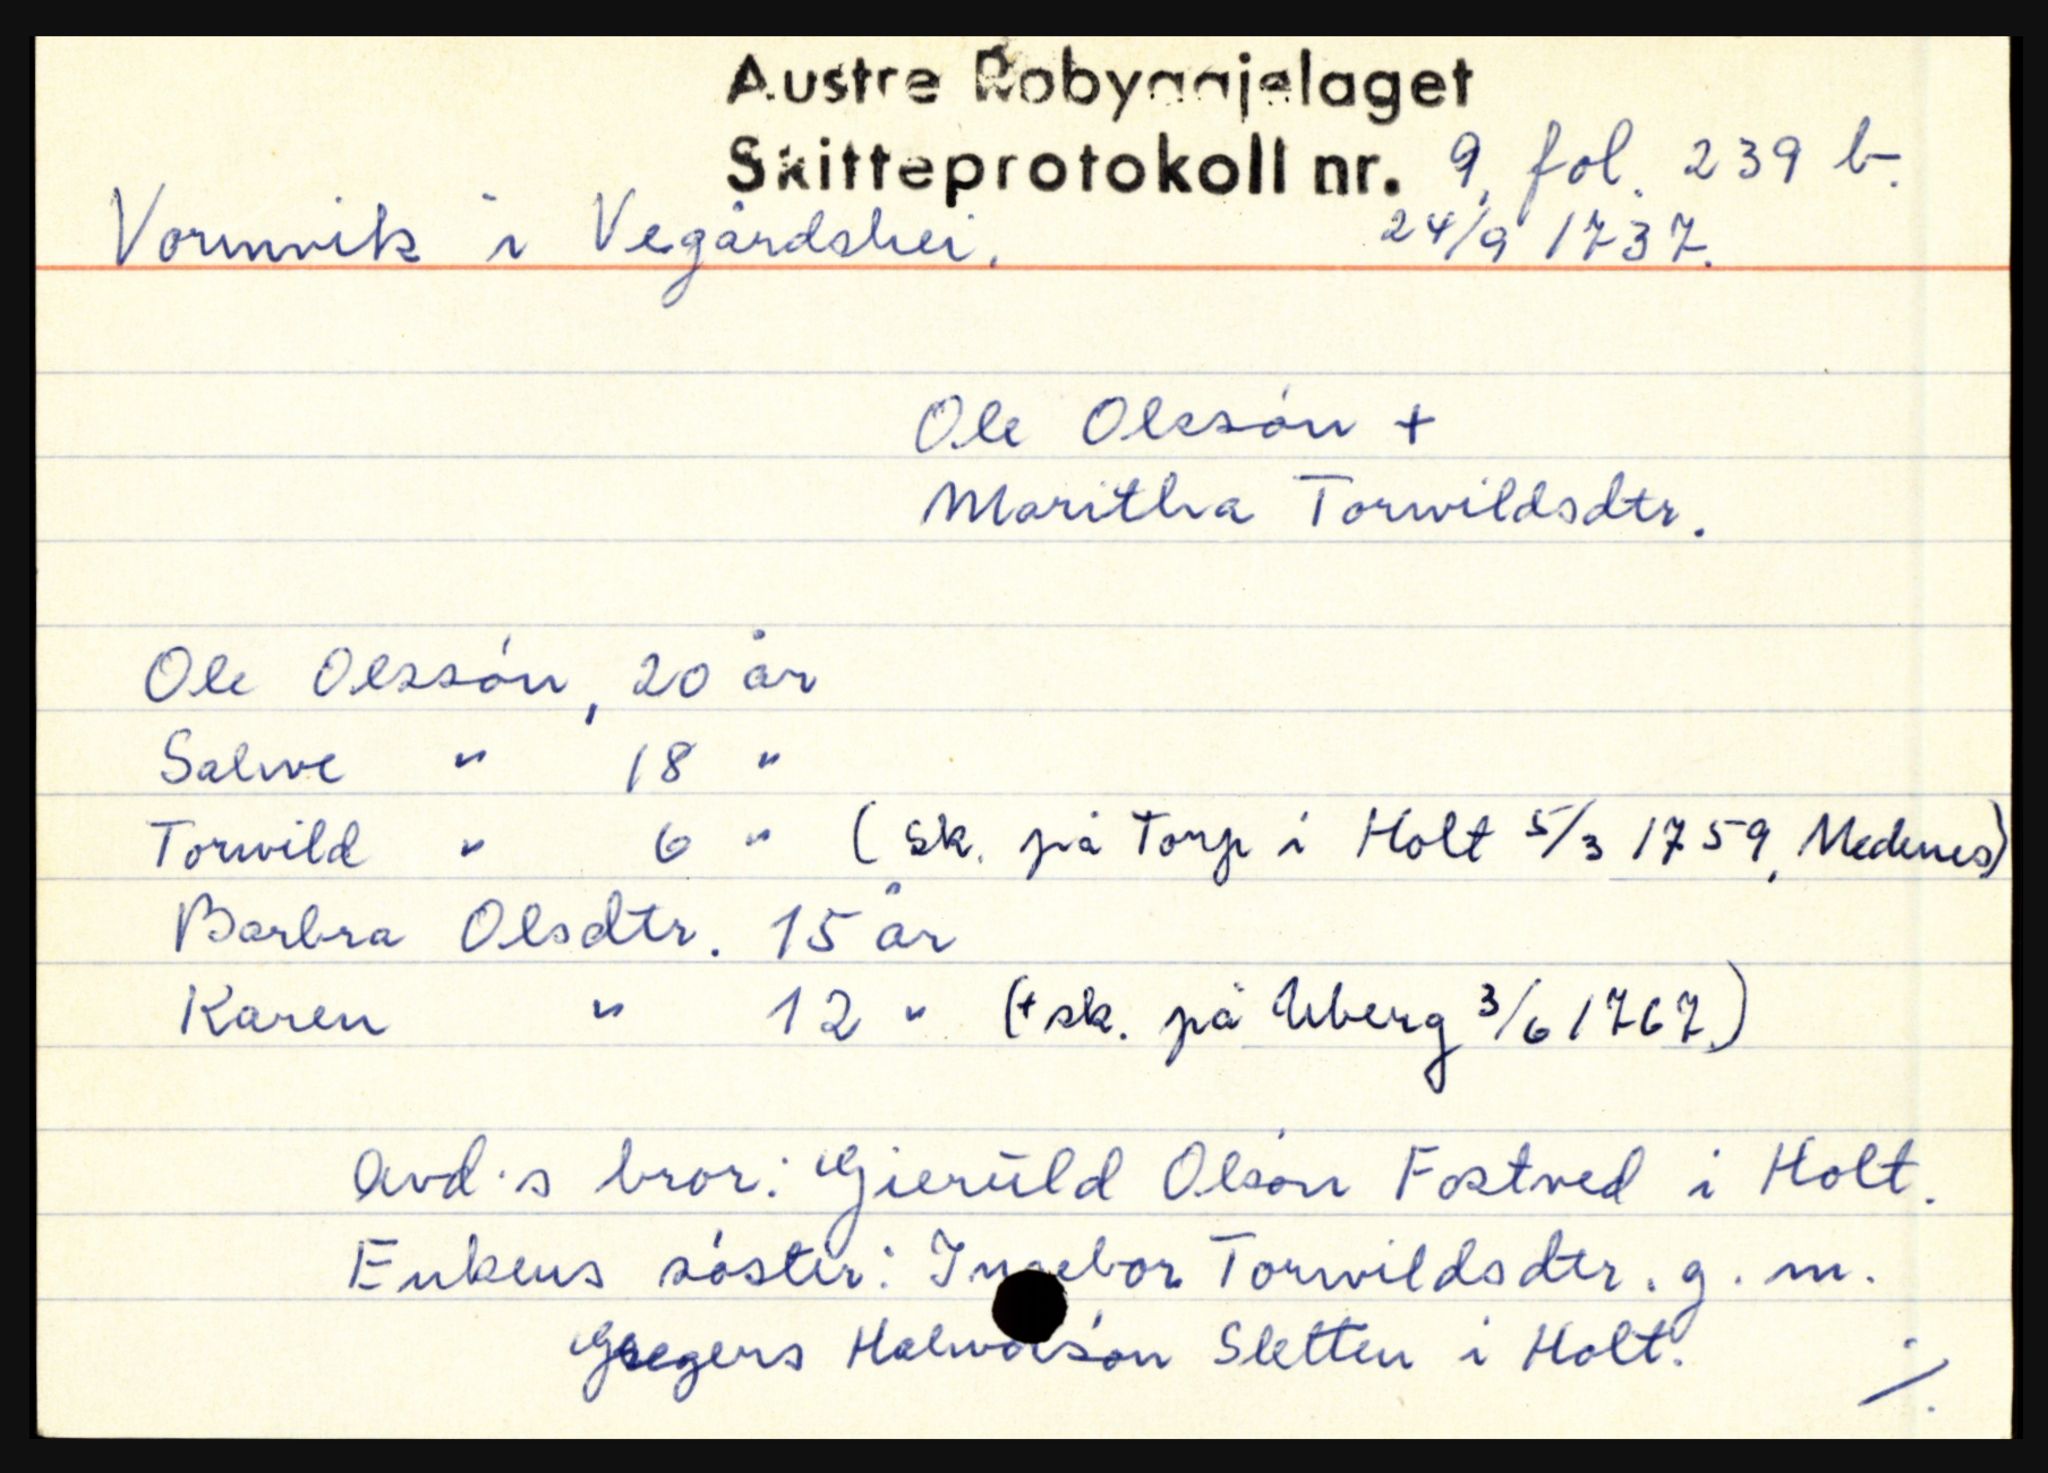 Austre Robyggjelaget
Skifteprotokoll nr. 9, fol. 239 b.
Vormvik i Vegårdshei. 24/9 1737.
Ole Olssón +
Maritha Torwildsdtr.
Ole Olssón, 20 år
Salwe " 18 "
Torwild " 6 " (sk. på Torp i Holt 5/3 1759, Nedenes)
Barbra Olsdtr. 15 år
Karen " 12 " (+ sk. på Uberg 3/6 1767.)
Avd.s bror: Gierüld Olsón Fostved i Holt.
Enkens sóster: Ingebor Torwildsdtr. g. m.
Gregers Halworsón Sletten i Holt.
./.